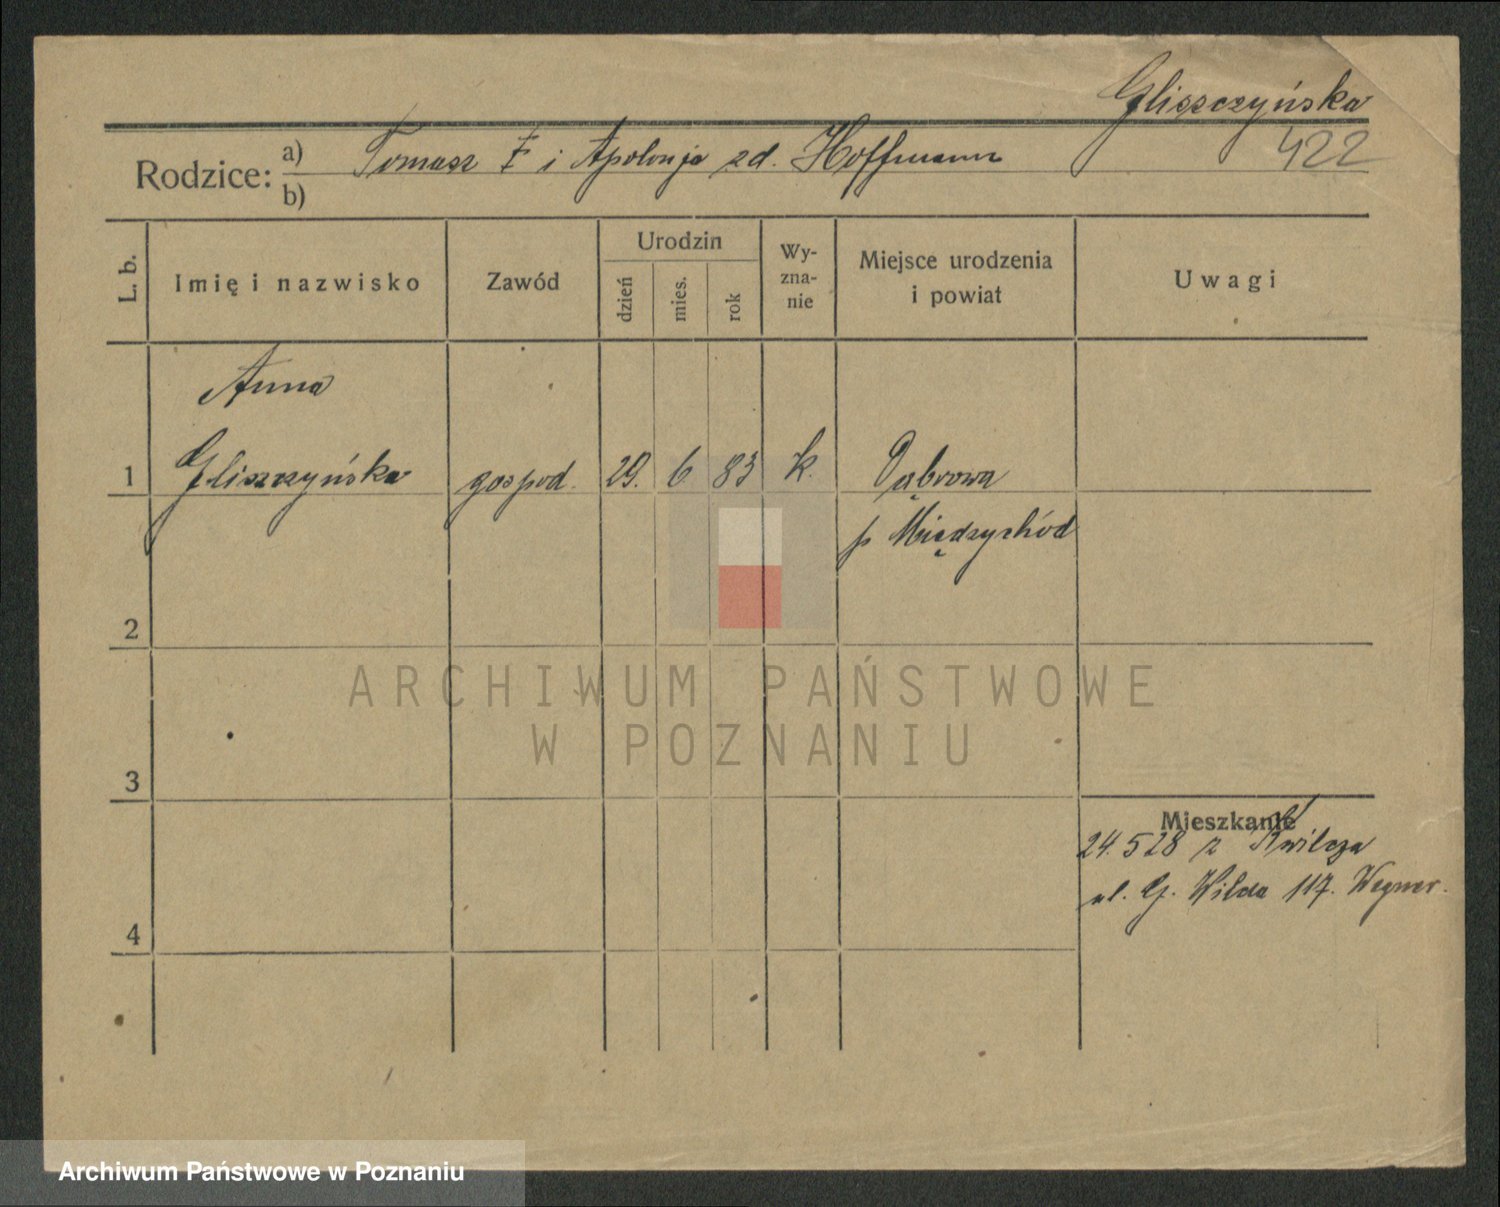 Gliszczyńska
422
Rodzice: a) Tomasz i Apolonja zd. Hoffmann
b)
L. b.
Imię i nazwisko
Zawód
Urodzin
dzień
mies.
rok
Wy-
zna-
nie
Miejsce urodzenia
i powiat
Uwagi
Anna
1 Gliszczyńska gospod. 29. 6 83 k. Dąbrowa
p Międzychód
2
3
4
Mieszkanie
24.5 28 z Kwilcza
ul. G. Wilda 117. Wegner.
ARCHIWUM PAŃSTWOWE
W POZNANIU
Archiwum Państwowe w Poznaniu